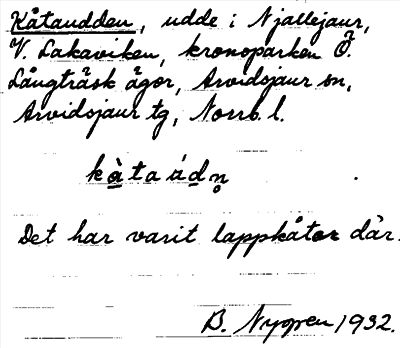 Kåtaudden, udde i Njallejaur,
V. Lakaviken, kronoparken Ö.
Långträsk ägor, Arvidsjaur sn,
Arvidsjaur tg, Norrb. l.
kȧ̀taádn̥
Det har varit lappkåtor där.
B. Nygren 1932.